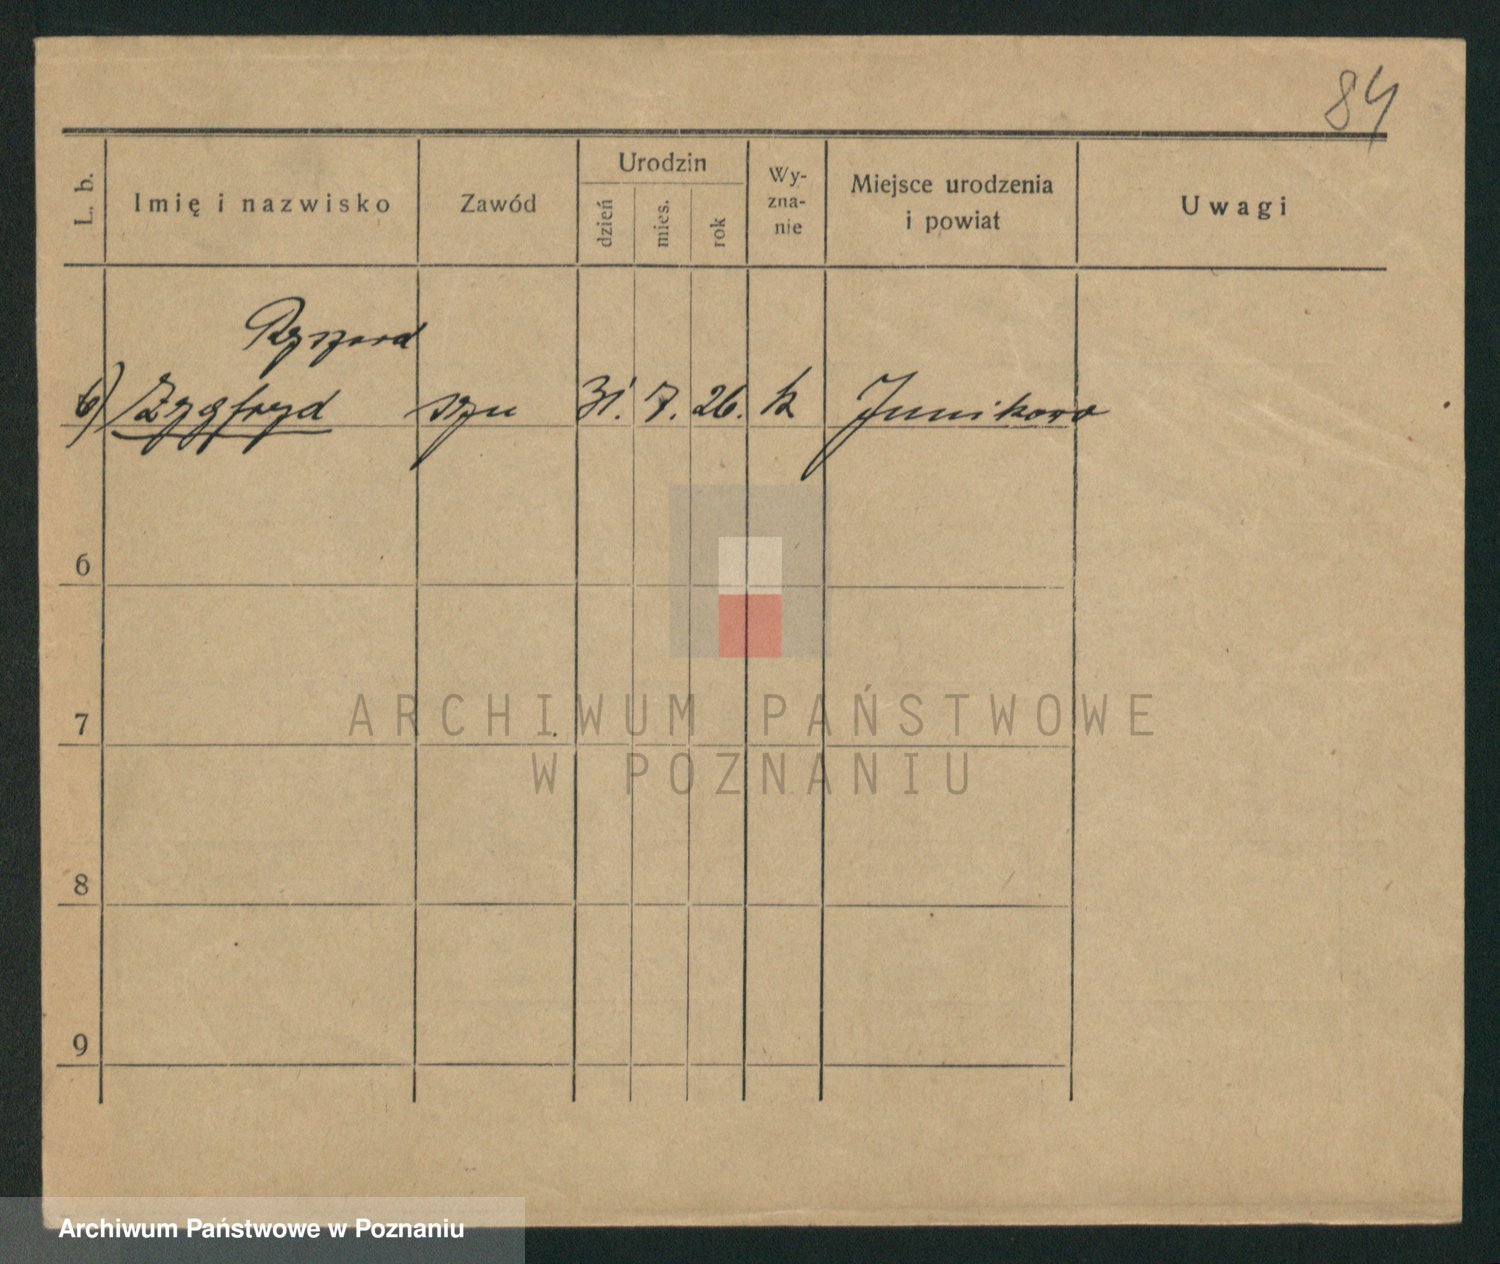 84
L. b.
Imię i nazwisko
Zawód
Urodzin
dzień
mies.
rok
Wy-
zna-
nie
Miejsce urodzenia
i powiat
Uwagi
Ryszard
6) Zygfryd syn 31. 7. 26. k Junikowo
6
7
8
9
ARCHIWUM PAŃSTWOWE
W POZNANIU
Archiwum Państwowe w Poznaniu